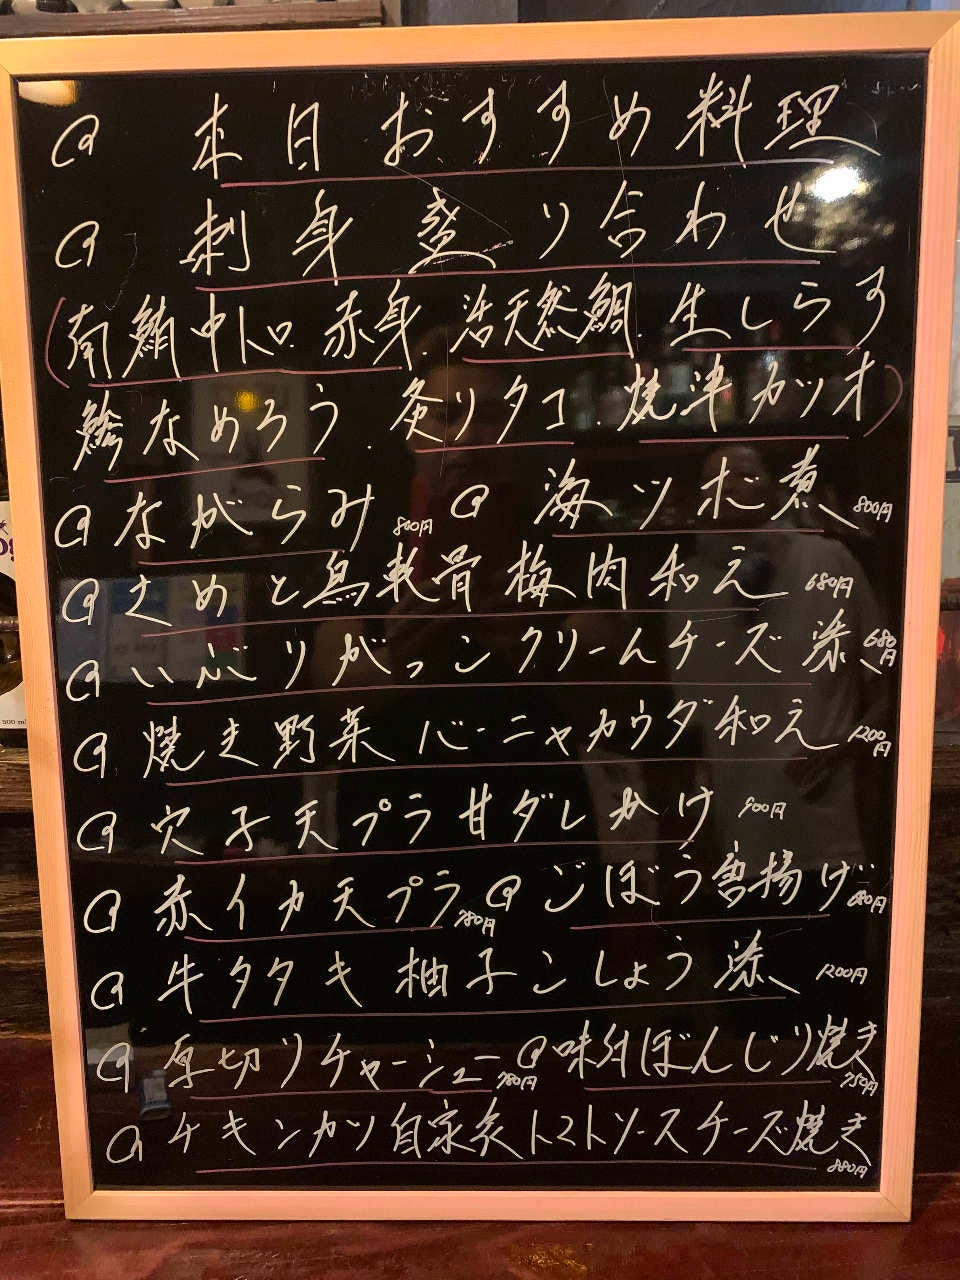 本日おすすめ料理
刺身盛り合わせ
(南鮪中トロ.赤身.活天然鯛.生しらす
鯵なめろう.炙りタコ.焼津カツオ)
ながらみ 800円 海ツボ煮 800円
さめと鳥軟骨梅肉和え 680円
いぶりがっこンクリームチーズ添 680円
焼き野菜バーニャカウダ和え 1200円
穴子天プラ甘ダレかけ 900円
赤イカ天プラ 780円 ごぼう唐揚げ 680円
牛タタキ柚子こしょう添 1200円
厚切りチャーシュー 780円 味付ぼんじり焼き 750円
チキンカツ自家炙トマトソースチーズ焼き 880円
500 ml